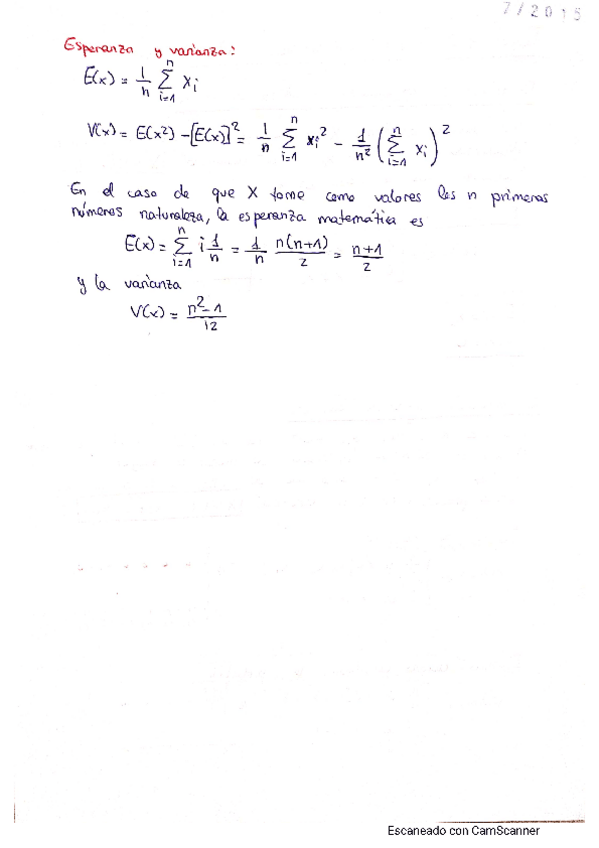 7/2015
Esperanza y varianza:
E(x) = 1/n ∑_{i=1}^{n} x_i
V(x) = E(x²) - [E(x)]² = 1/n ∑_{i=1}^{n} x_i² - 1/n² (∑_{i=1}^{n} x_i)²
En el caso de que X tome como valores los n primeros
números naturaleza, la esperanza matemática es
E(x) = ∑_{i=1}^{n} i 1/n = 1/n n(n+1)/2 = n+1/2
y la varianza
V(x) = n²-1/12
Escaneado con CamScanner